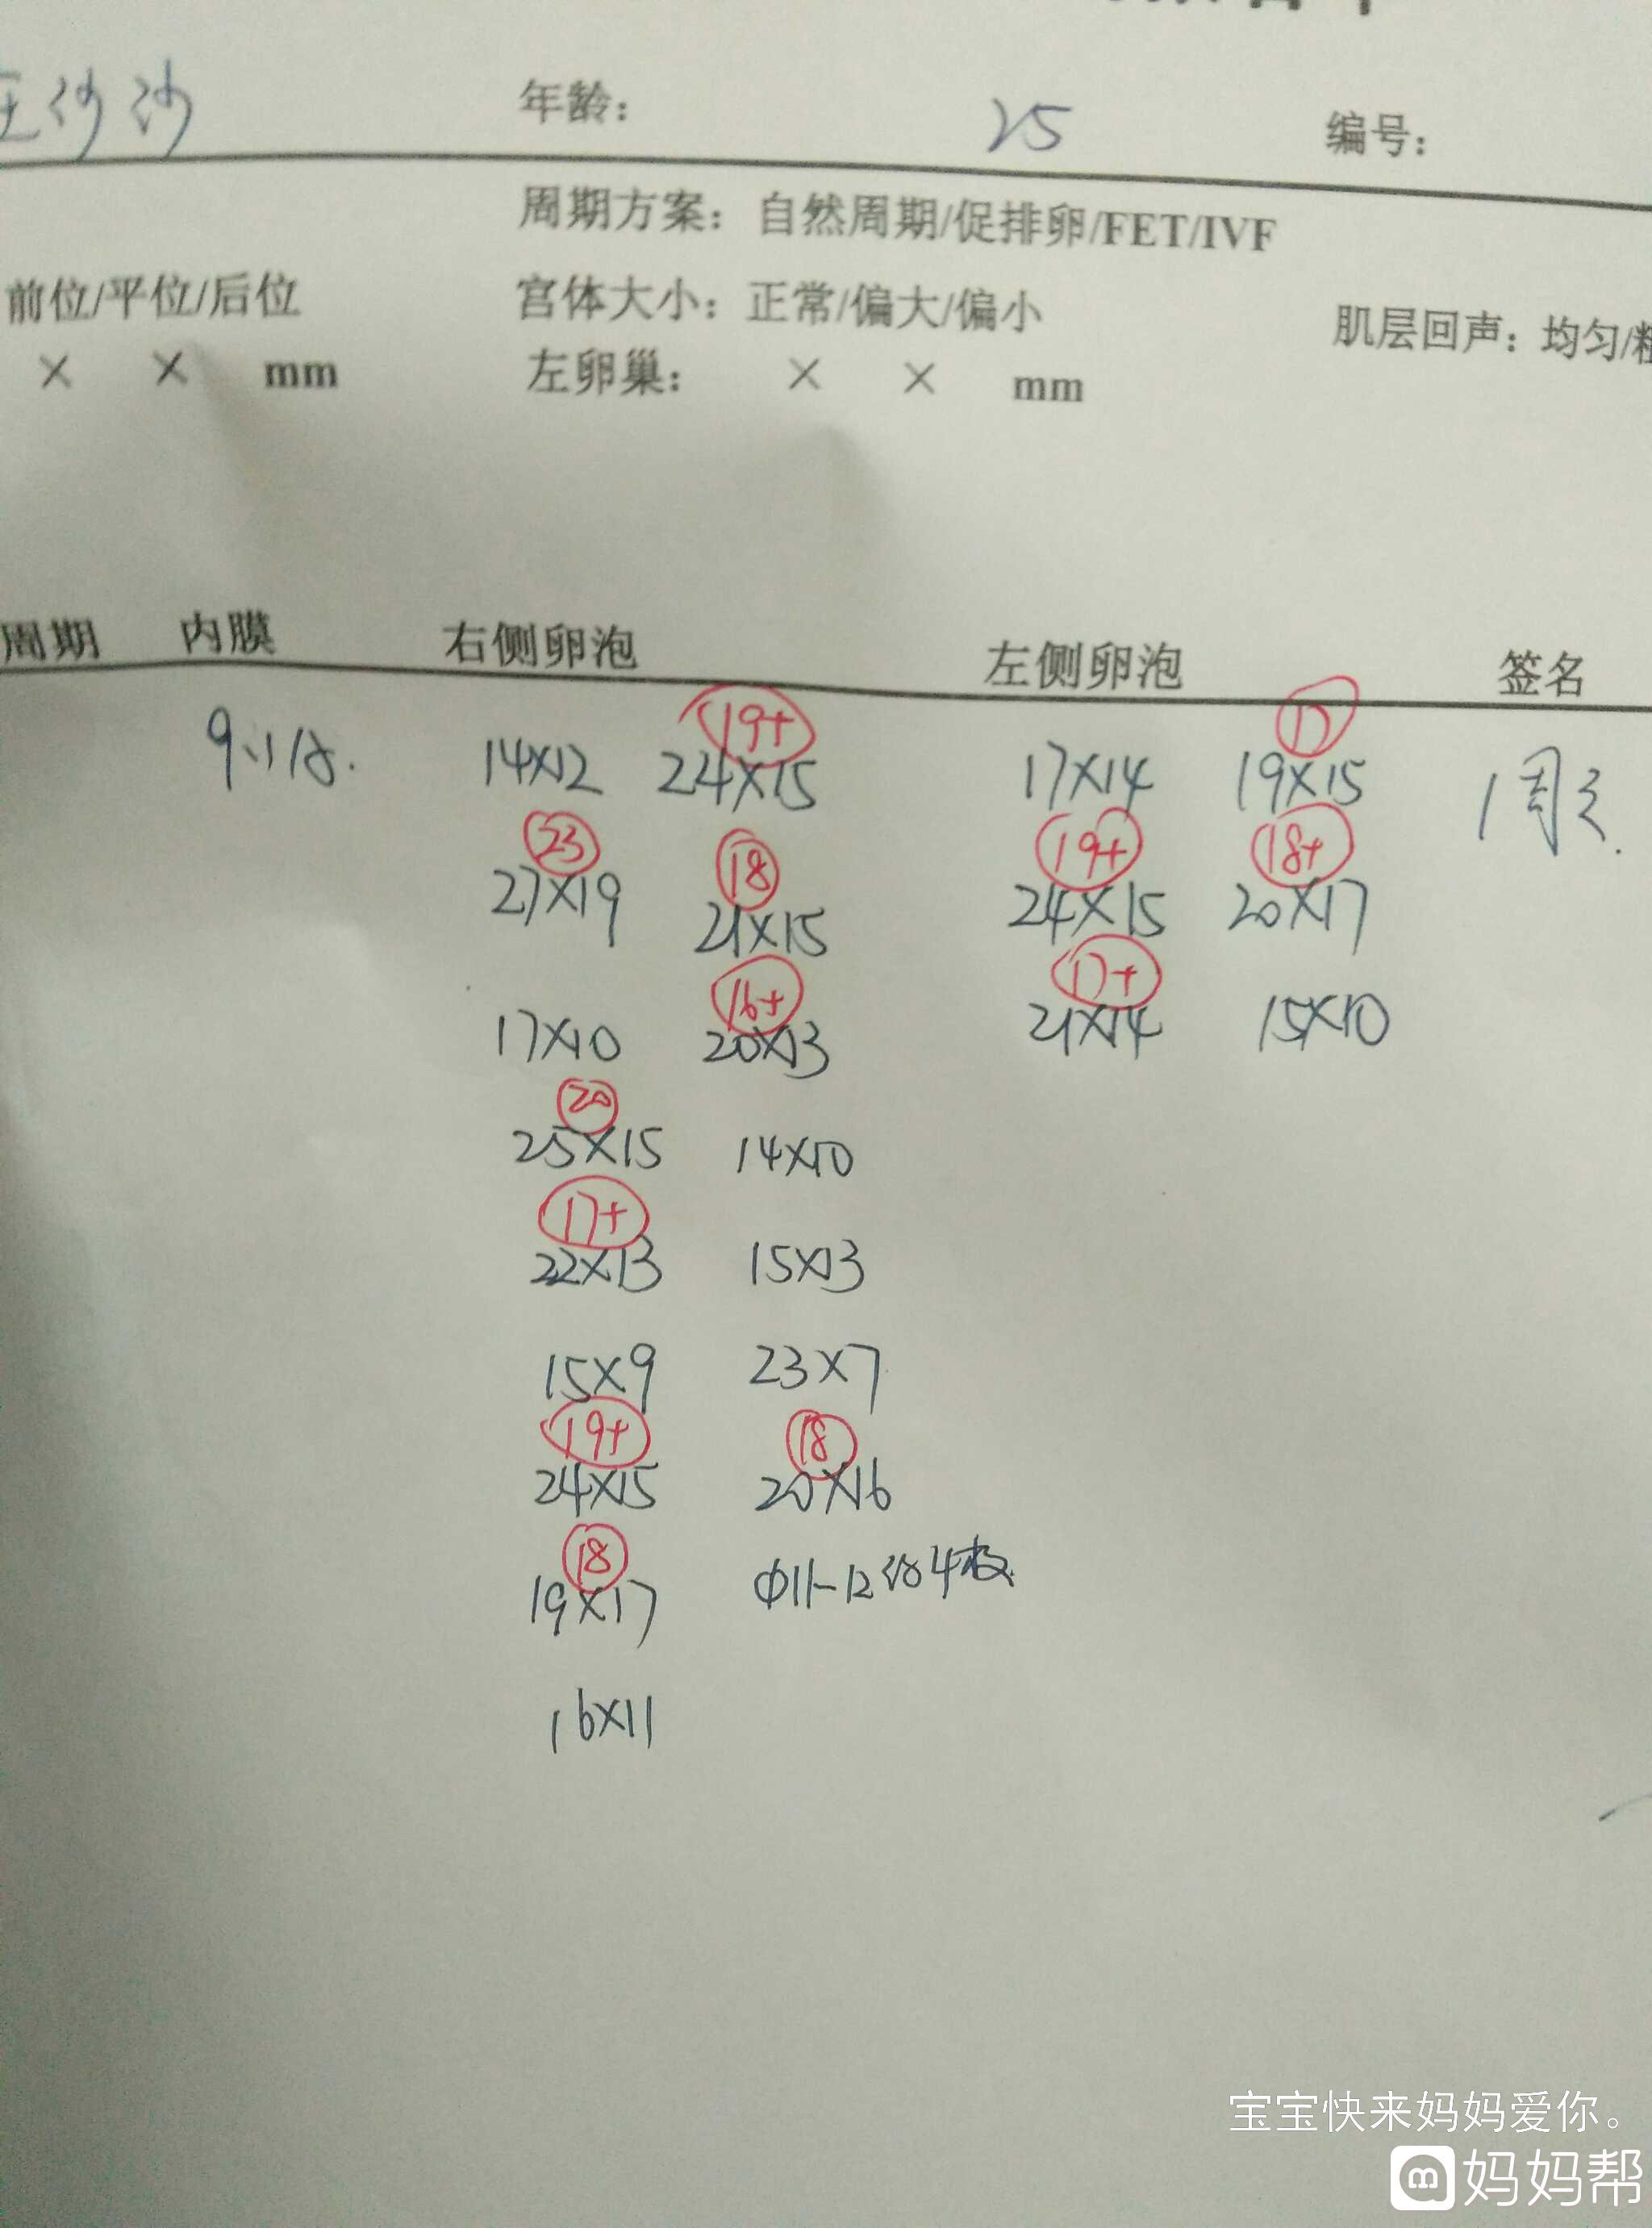 沙沙 年龄: 25 编号:
周期方案: 自然周期/促排卵/FET/IVF
前位/平位/后位 宫体大小: 正常/偏大/偏小 肌层回声: 均匀/
× × mm 左卵巢: × × mm
周期 内膜 右侧卵泡 左侧卵泡 签名
19+ 17
14×12 24×15 17×14 19×15
23 18 19+ 18+
27×19 21×15 24×15 20×17
16+ 17+
17×10 20×13 21×14 15×10
20
25×15 14×10
17+
22×13 15×13
15×9 23×7
19+ 18
24×15 20×16
18
19×17 Φ11-12 4枚
16×11
宝宝快来妈妈爱你。
妈妈帮